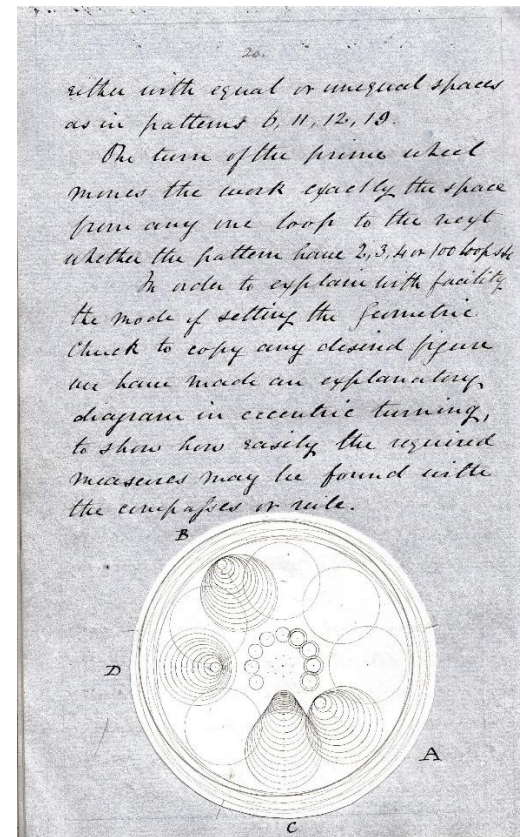 20.
either with equal or unequal spaces
as in patterns 6, 11, 12, 19.
One turn of the prime wheel
moves the work exactly the space
from any one loop to the next
whether the pattern have 2, 3, 4 or 100 loops &c
In order to explain with facility
the mode of setting the Geometric
Chuck to copy any desired figure
we have made an explanatory
diagram in eccentric turning,
to show how easily the required
measures may be found with
the compasses or rule.
B
D
A
C